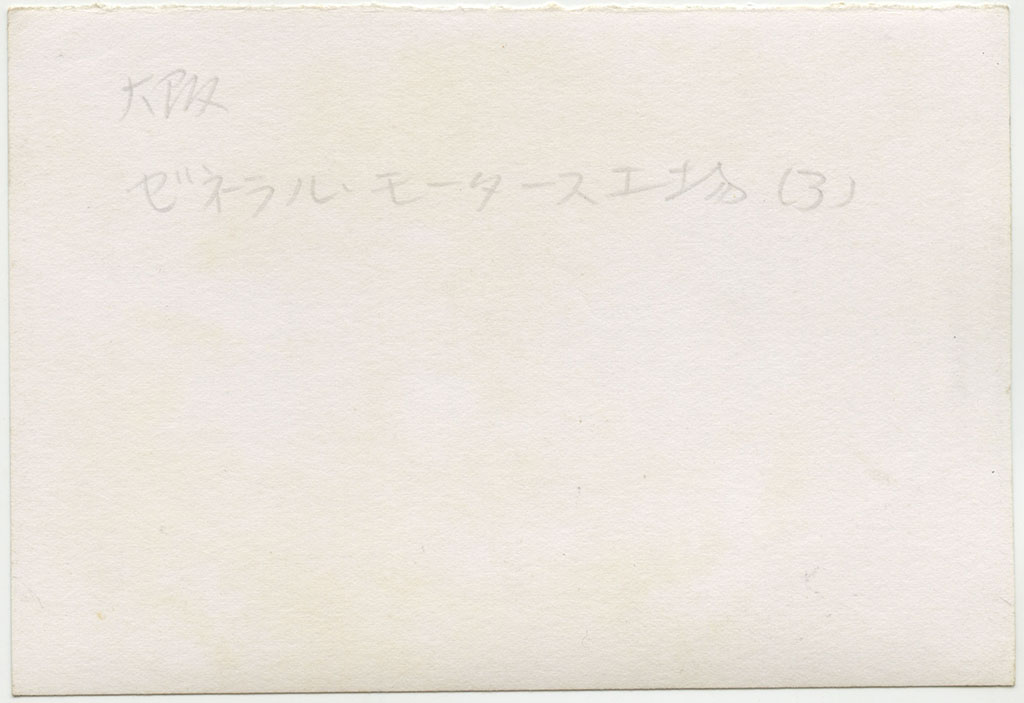 大阪
ゼネラル・モータース工場 (3)